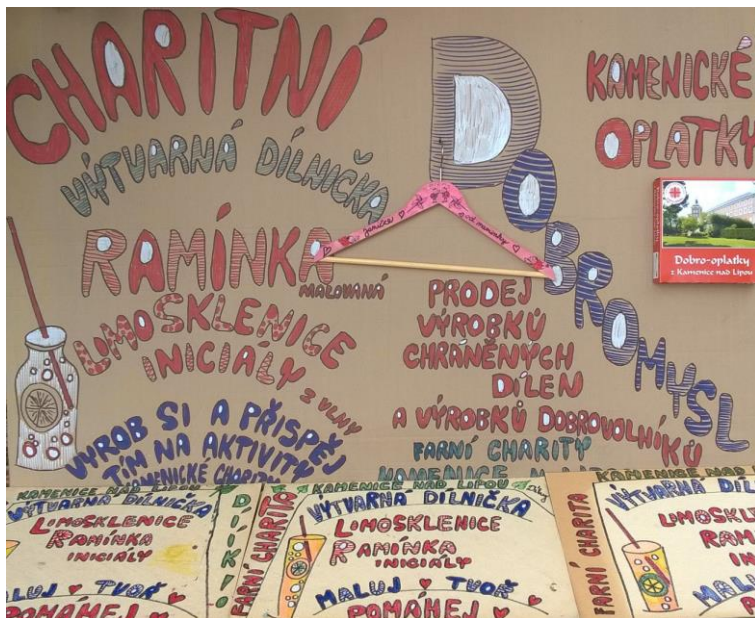 CHARITNÍ
VÝTVARNÁ DÍLNIČKA
RAMÍNKA
MALOVANÁ
LIMOSKLENICE
INICIÁLY Z VLNY
VYROB SI A PŘISPĚJ
TÍM NA AKTIVITY
KAMENICKÉ CHARITY
DOBROMYSL
KAMENICKÉ
OPLATKY
Dobro-oplatky
z Kamenice nad Lipou
PRODEJ
VÝROBKŮ
CHRÁNĚNÝCH
DÍLEN
A VÝROBKŮ DOBROVOLNÍKŮ
FARNÍ CHARITY
KAMENICE
KAMENICE NAD LIPOU
VÝTVARNÁ DÍLNIČKA
LIMOSKLENICE
RAMÍNKA
INICIÁLY
MALUJ TVOŘ
POMÁHEJ
DÍKY
FARNÍ CHARITA
KAMENICE NAD LIPOU
VÝTVARNÁ DÍLNIČKA
LIMOSKLENICE
RAMÍNKA
INICIÁLY
MALUJ TVOŘ
POMÁHEJ
FARNÍ CHARITA
KAMENICE NAD
VÝTVARNÁ DÍL
LIMOSKL
RAM
IN
MALU
PO